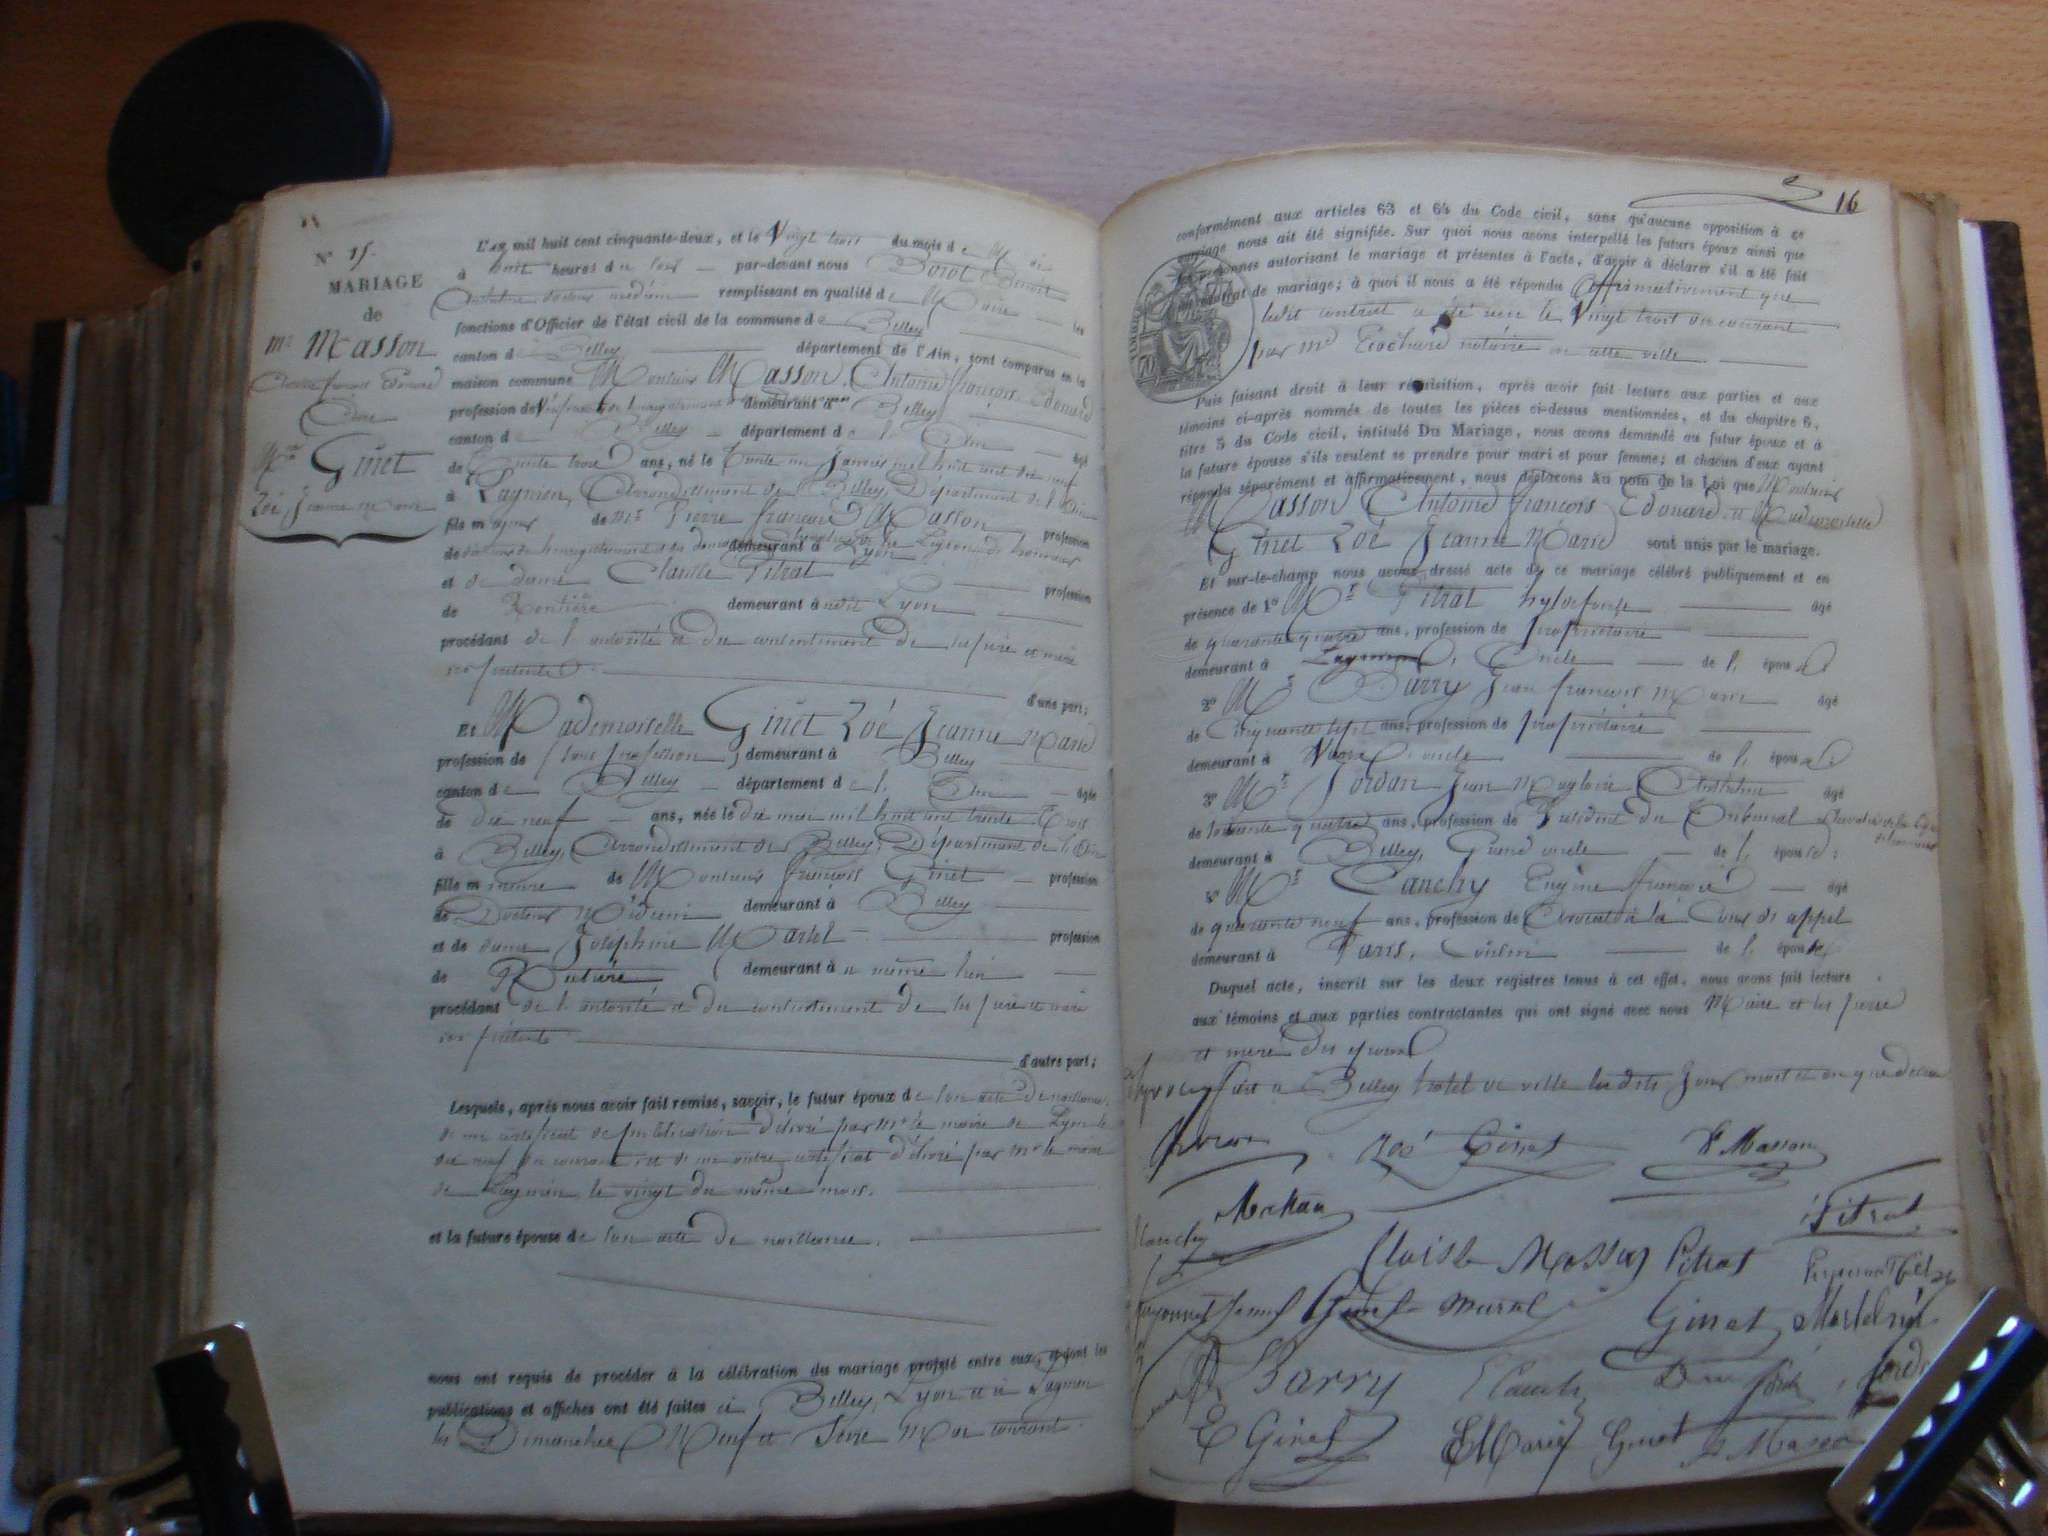 N° 15.
MARIAGE
de
Mr Masson
Antoine françois Edouard
Mlle Ginet
Zoé, Jeanne Marie
L'AN mil huit cent cinquante-deux, et le Vingt trois du mois de Mai
à huit heures du soir par-devant nous Dorot Benoit
Anthelme docteur médecin remplissant en qualité de Maire les
fonctions d'Officier de l'état civil de la commune de Belley
canton de Belley département de l'Ain, sont comparus en la
maison commune Monsieur Masson, Antoine françois Edouard
profession de demeurant à Belley
canton de Belley département de l'Ain âgé
de Trente trois ans, né le Trente un Janvier mil huit cent dix neuf
à Lagnieu, Arrondissement de Belley, Département de l'Ain
fils majeur de Mr Pierre françois Masson profession
de demeurant à Lyon
et de dame Claire Pitrat profession
de Rentière demeurant à Lyon
procédant de l'autorité et du consentement de ses père et mère
ici présents. d'une part;
Et Mademoiselle Ginet Zoé Jeanne Marie
profession de sans profession, demeurant à Belley
canton de Belley département de l'Ain âgée
de dix neuf ans, née le dix mai mil huit cent trente trois
à Belley, Arrondissement de Belley, Département de l'Ain
fille mineure de Monsieur françois Ginet profession
de Docteur Médecin demeurant à Belley
et de dame Joséphine Martel profession
de Rentière demeurant à même lieu
procédant de l'autorité et du consentement de ses père et mère
ici présents d'autre part;
Lesquels, après nous avoir fait remise, savoir, le futur époux de son acte de naissance,
de un certificat de publication délivré par Mr le maire de Lyon le
dix neuf du courant et de un autre certificat délivré par Mr le maire
de Lagnieu le vingt du même mois.
et la future épouse de son acte de naissance.
nous ont requis de procéder à la célébration du mariage projeté entre eux, et dont les
publications et affiches ont été faites à Belley, Lyon et à Lagnieu
les Dimanches Neuf et Seize Mai courant
16
conformément aux articles 63 et 64 du Code civil, sans qu'aucune opposition à ce
mariage nous ait été signifiée. Sur quoi nous avons interpellé les futurs époux ainsi que
les personnes autorisant le mariage et présentes à l'acte, d'avoir à déclarer s'il a été fait
un contrat de mariage; à quoi il nous a été répondu affirmativement que
ledit contrat a été reçu le Vingt trois du courant
par Me notaire en cette ville
Puis faisant droit à leur réquisition, après avoir fait lecture aux parties et aux
témoins ci-après nommés de toutes les pièces ci-dessus mentionnées, et du chapitre 6,
titre 5 du Code civil, intitulé Du Mariage, nous avons demandé au futur époux et à
la future épouse s'ils veulent se prendre pour mari et pour femme; et chacun d'eux ayant
répondu séparément et affirmativement, nous déclarons au nom de la Loi que Monsieur
Masson Antoine françois Edouard et Mademoiselle
Ginet Zoé Jeanne Marie sont unis par le mariage.
Et sur-le-champ nous avons dressé acte de ce mariage célébré publiquement et en
présence de 1° Mr Pitrat hyldefonse âgé
de quarante quatre ans, profession de propriétaire
demeurant à Lagnieu, Oncle de l'époux
2° Mr Barry Jean françois Marie âgé
de Cinquante sept ans, profession de propriétaire
demeurant à oncle de l'époux;
3° Mr Jordan Jean Magloire Anthelme âgé
de soixante quatre ans, profession de Président du Tribunal
demeurant à Belley, Grand oncle de l'épouse;
4° Mr Canchy Eugène françois âgé
de quarante neuf ans, profession de Avocat à la Cour d'appel
demeurant à Paris, Cousin de l'épouse
Duquel acte, inscrit sur les deux registres tenus à cet effet, nous avons fait lecture
aux témoins et aux parties contractantes qui ont signé avec nous Maire et les père
et mère des époux
fait à Belley hotel de ville les dits jour mois et an que dessus
Zoé Ginet
Masson
Pitrat
Masson Pitrat
Ginet Martel
Barry
E Ginet
Marie Ginet
Masson